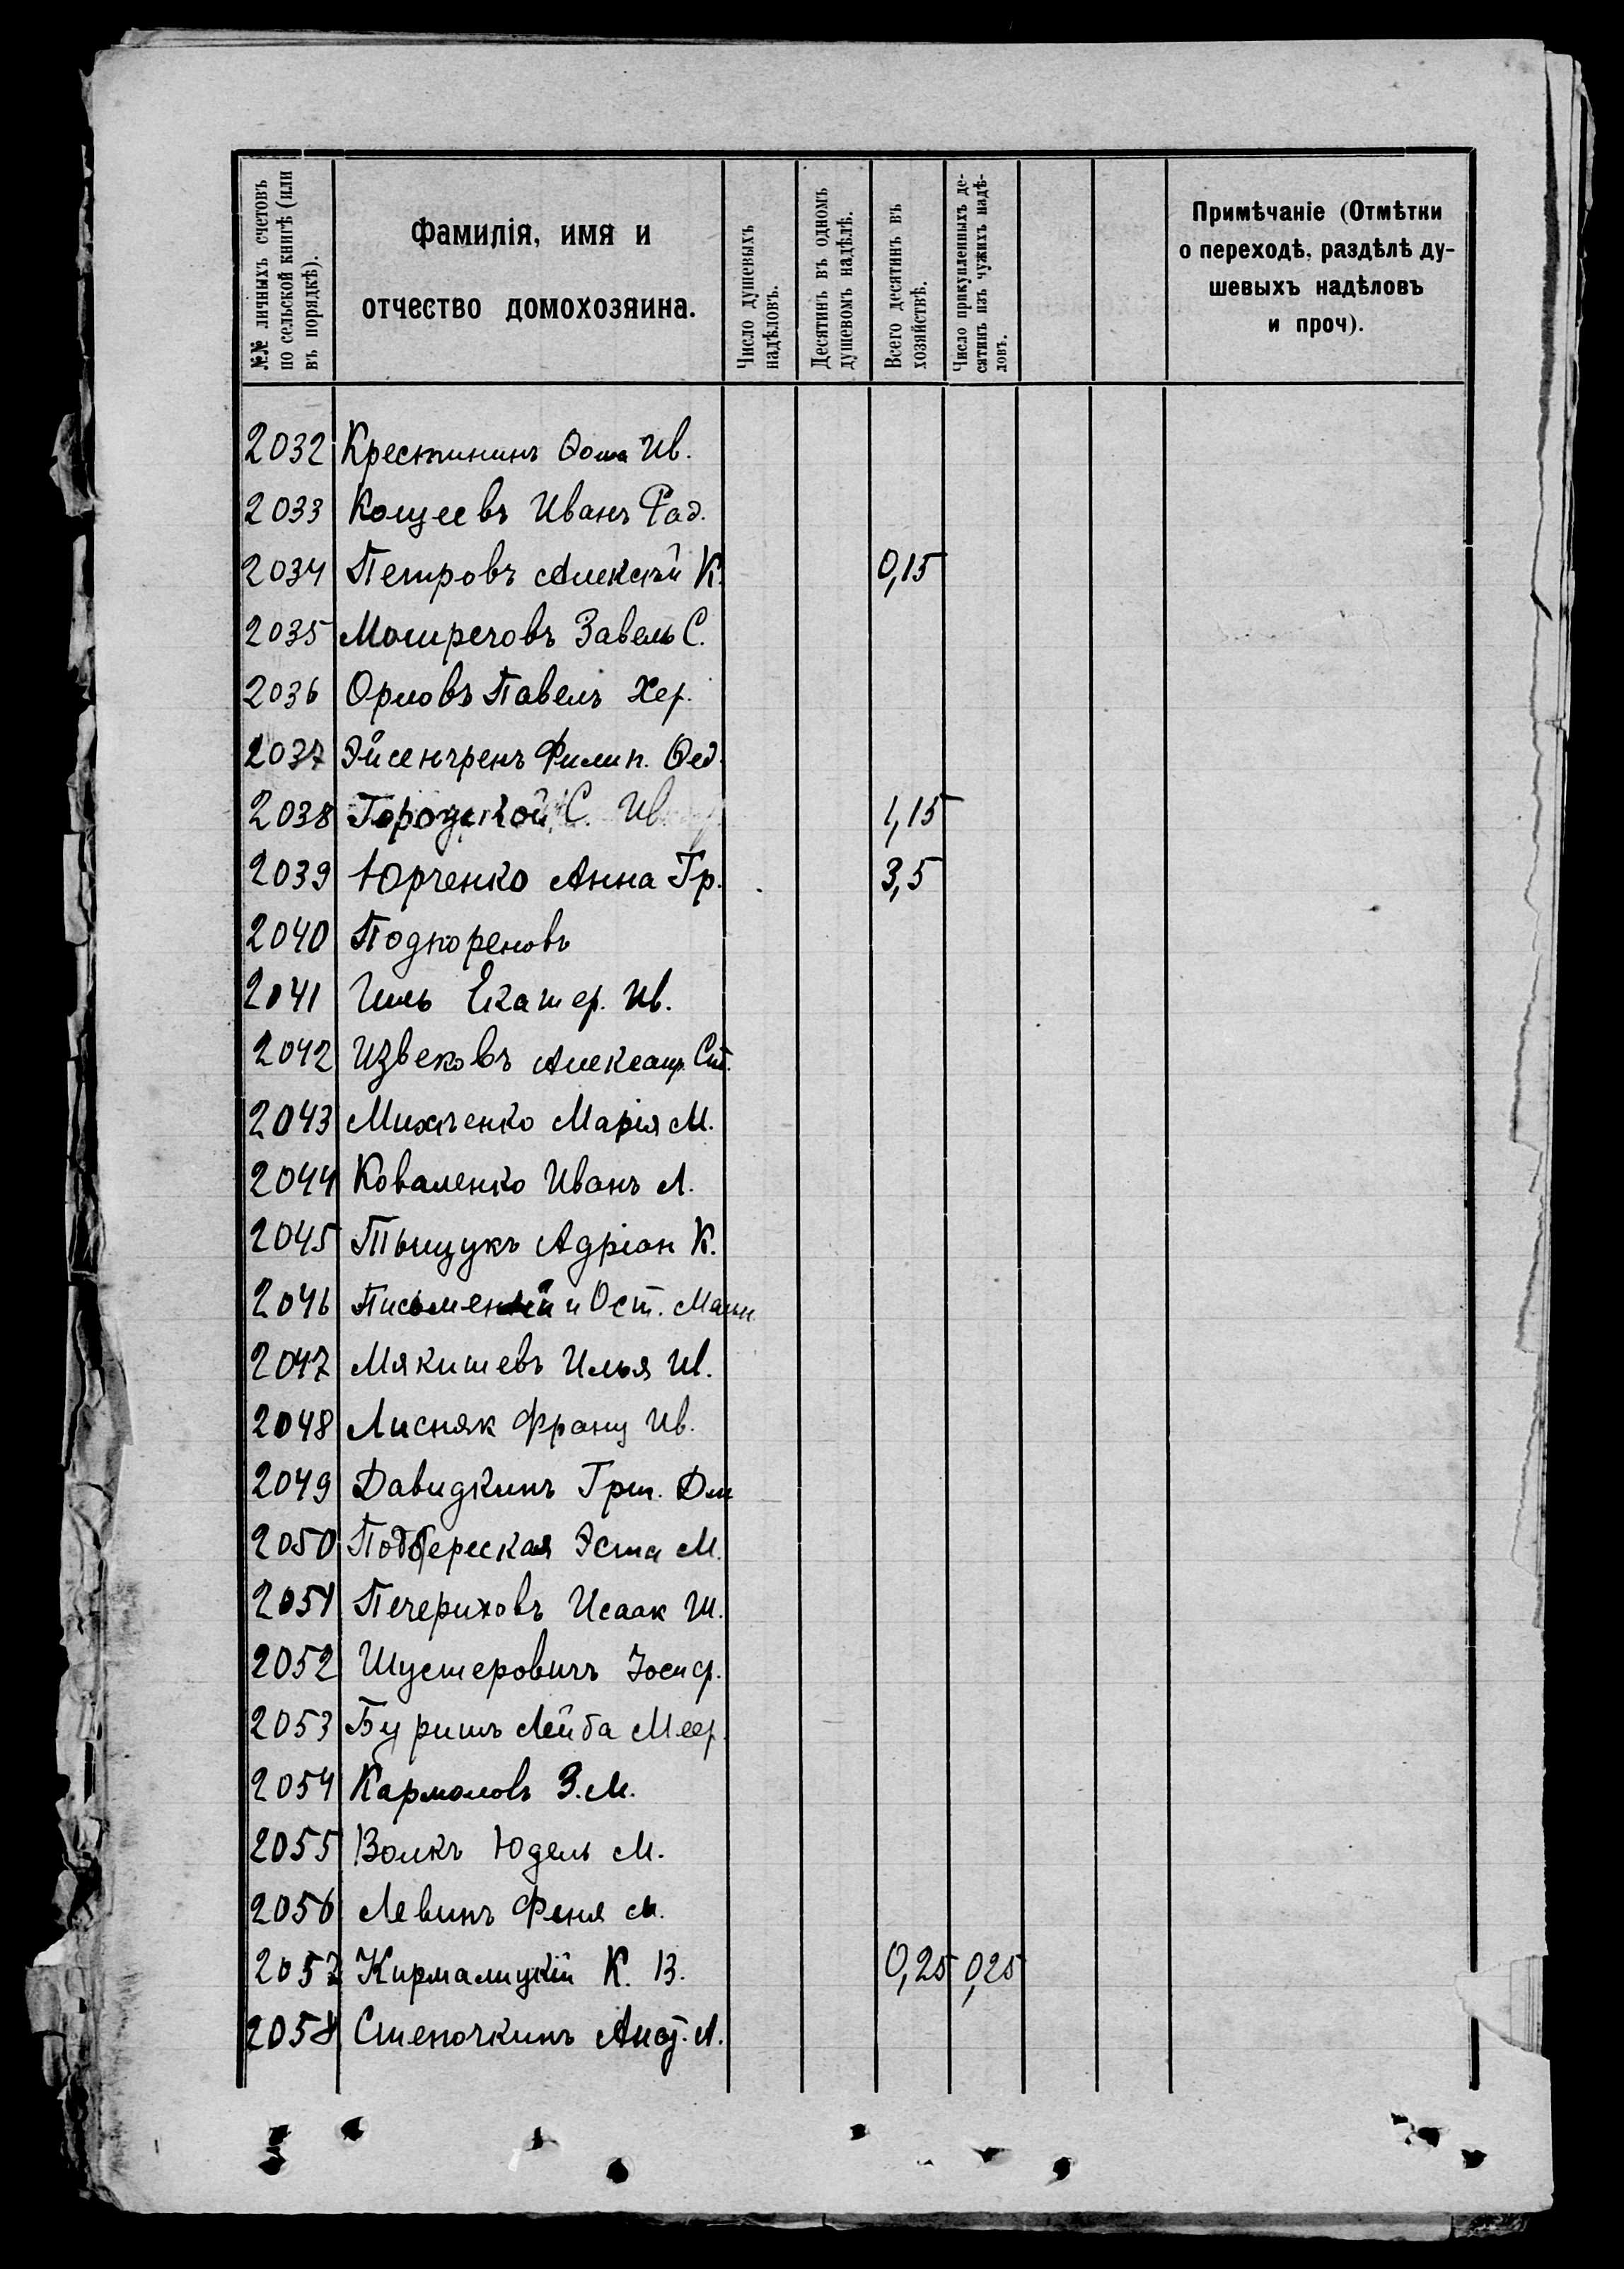 №№ личныхъ счетовъ
по сельской книгѣ (или
въ порядкѣ).
Фамилія, имя и
отчество домохозяина.
Число душевыхъ
надѣловъ.
Десятинъ въ одномъ
душевомъ надѣлѣ.
Всего десятинъ въ
хозяйствѣ.
Число прикупленныхъ де-
сятинъ изъ чужихъ надѣ-
ловъ.
Примѣчаніе (Отмѣтки
о переходѣ, раздѣлѣ ду-
шевыхъ надѣловъ
и проч).
2032 Крестининъ Ѳома Ив.
2033 Кощеевъ Иванъ Рад.
2034 Петровъ Алексѣй К. 0,15
2035 Завель С.
2036 Орловъ Павелъ Хер.
2037 Эйсенгренъ Филип. Ѳед.
2038 Городской С. Ив. 1,15
2039 Юрченко Анна Гр. 3,5
2040 Подкореновъ
2041 Гиль Екатер. Ив.
2042 Извековъ Александ. Ст.
2043 Михченко Марія М.
2044 Коваленко Иванъ Л.
2045 Тыщукъ Адріан К.
2046 Ост.
2047 Мякишевъ Илья Ив.
2048 Лисняк Франц Ив.
2049 Давидкинъ Гри. Дм
2050 Подбереская Эста М.
2051 Печериховъ Исаак Ш.
2052 Шустеровичъ Іосиф.
2053 Буришъ Лейба Меер.
2054 Кармоловъ З. М.
2055 Волкъ Юдель М.
2056 Левинъ Феня М.
2057 Кирмалицкій К. В. 0,25 0,25
2058 Стеночкинъ Л.